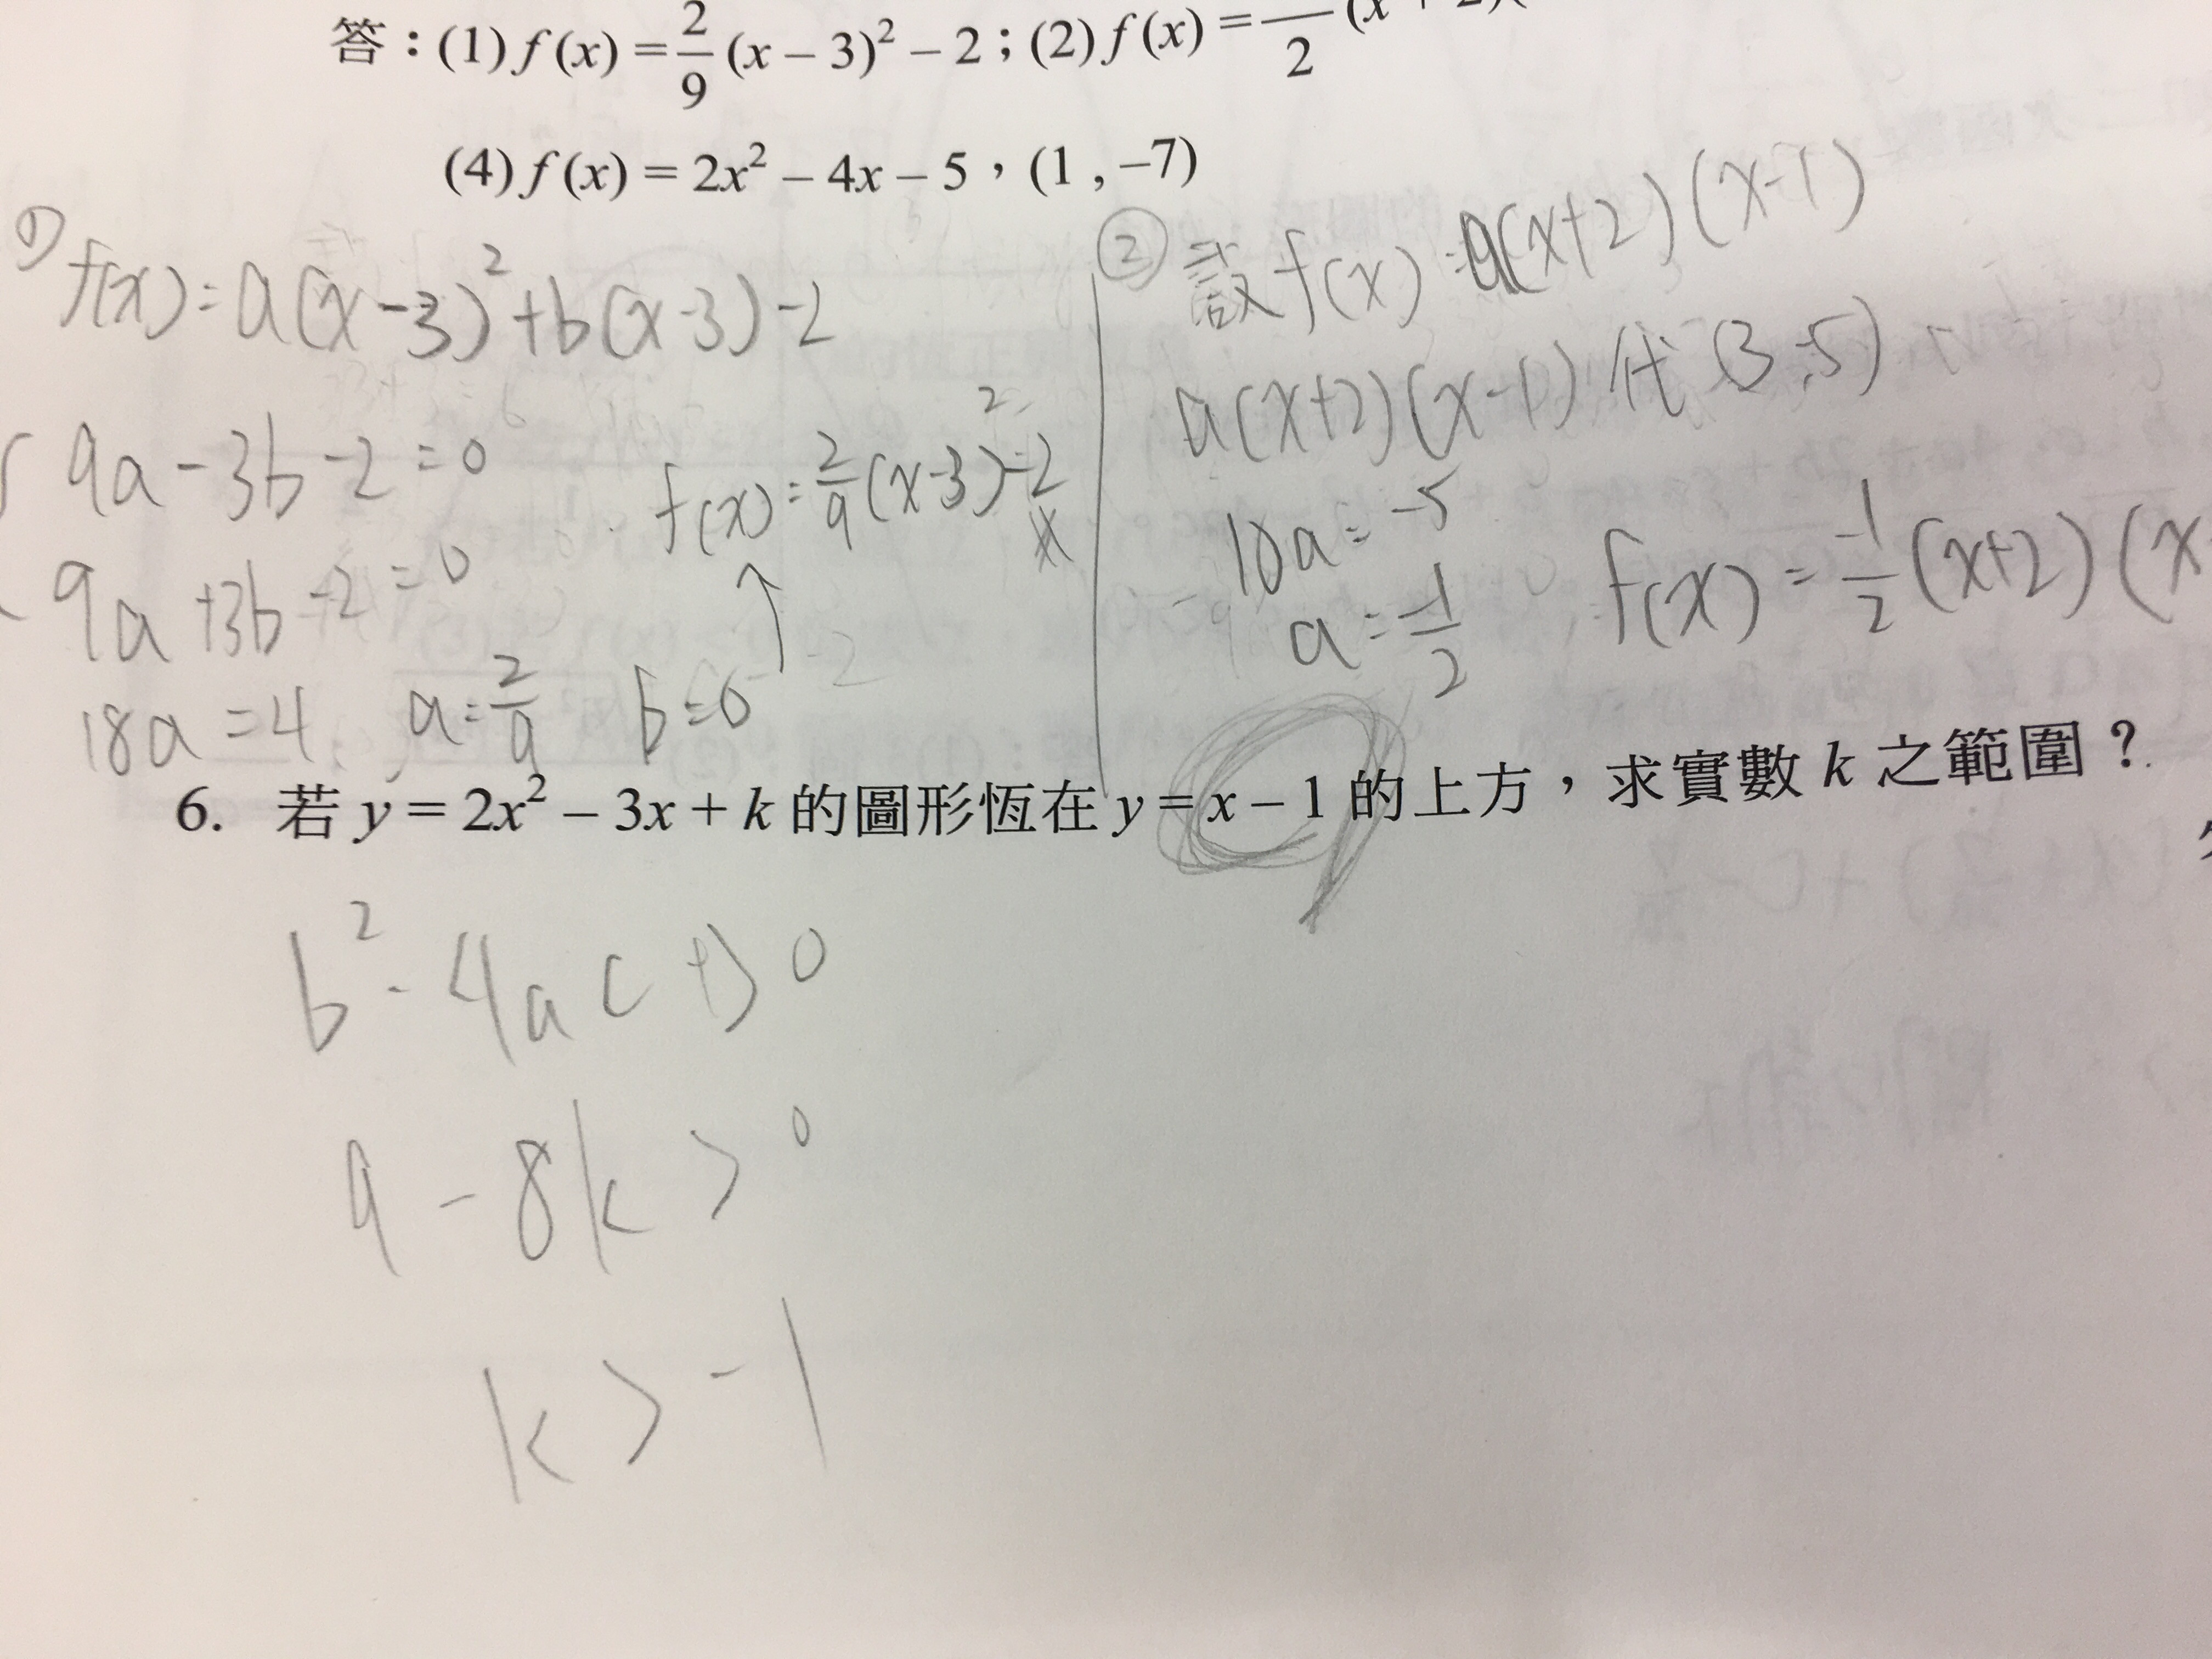 答：(1) f(x) = 2/9 (x – 3)² – 2；(2) f(x) = —/2 (x + 2)(
(4) f(x) = 2x² – 4x – 5，(1 , –7)
① f(x) = a(x-3)² + b(x-3) -2
9a - 3b - 2 = 0
9a + 3b - 2 = 0
18a = 4, a = 2/9 b = 0
f(x) = 2/9 (x-3)² - 2
② 設 f(x) = a(x+2)(x-1)
a(x+2)(x-1) 代 (3,-5)
10a = -5
a = -1/2
f(x) = -1/2 (x+2)(x
6. 若 y = 2x² – 3x + k 的圖形恆在 y = x – 1 的上方，求實數 k 之範圍？
b² - 4ac > 0
9 - 8k > 0
k > -1